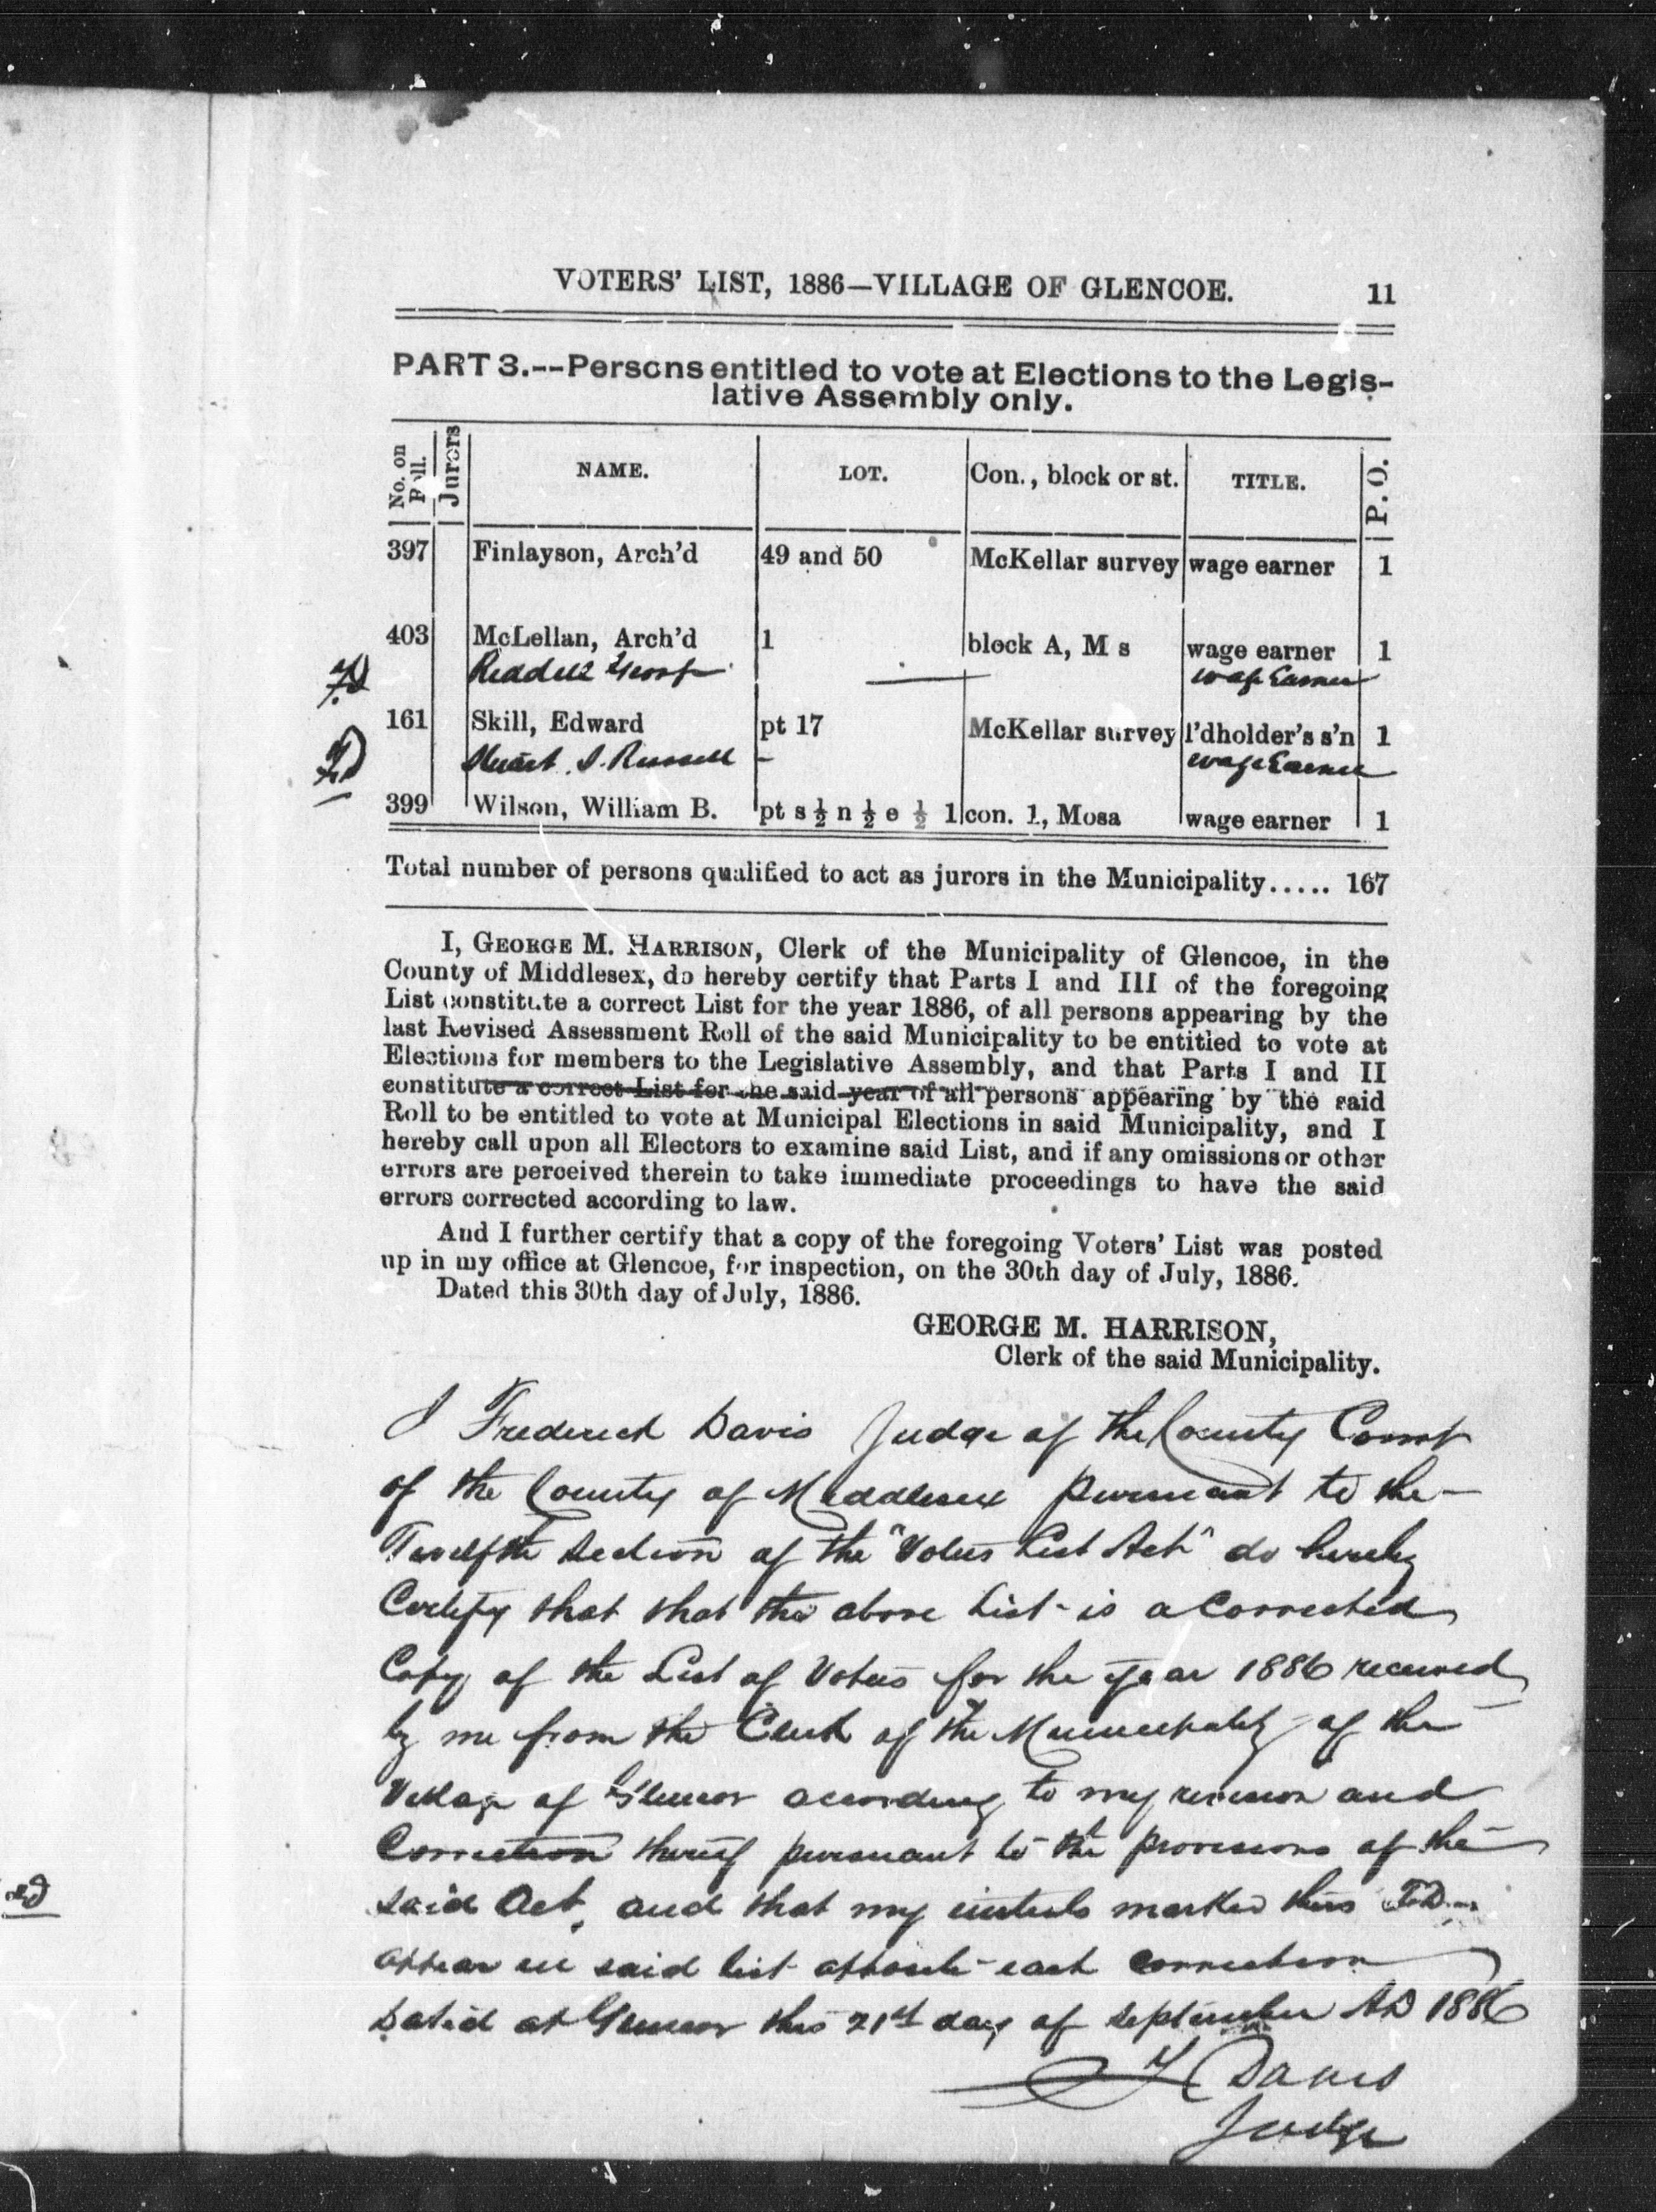 VOTERS' LIST, 1886—VILLAGE OF GLENCOE. 11
PART 3.--Persons entitled to vote at Elections to the Legis-
lative Assembly only.
No. on Poll. Jurors NAME. LOT. Con., block or st. TITLE. P. O.
397 Finlayson, Arch'd 49 and 50 McKellar survey wage earner 1
403 McLellan, Arch'd 1 block A, M s wage earner 1
FD Riddell Georg — wage Earner
161 Skill, Edward pt 17 McKellar survey l'dholder's s'n 1
FD Stuart S. Russell - wage Earner
399 Wilson, William B. pt s ½ n ½ e ½ 1 con. 1, Mosa wage earner 1
Total number of persons qualified to act as jurors in the Municipality..... 167
I, GEORGE M. HARRISON, Clerk of the Municipality of Glencoe, in the
County of Middlesex, do hereby certify that Parts I and III of the foregoing
List constitute a correct List for the year 1886, of all persons appearing by the
last Revised Assessment Roll of the said Municipality to be entitled to vote at
Elections for members to the Legislative Assembly, and that Parts I and II
constitute a correct List for the said year of all persons appearing by the said
Roll to be entitled to vote at Municipal Elections in said Municipality, and I
hereby call upon all Electors to examine said List, and if any omissions or other
errors are perceived therein to take immediate proceedings to have the said
errors corrected according to law.
And I further certify that a copy of the foregoing Voters' List was posted
up in my office at Glencoe, for inspection, on the 30th day of July, 1886.
Dated this 30th day of July, 1886.
GEORGE M. HARRISON,
Clerk of the said Municipality.
I Frederick Davis Judge of the County Court
of the County of Middlesex pursuant to the
Twelfth Section of the "Voters List Act" do hereby
Certify that that the above List is a corrected
Copy of the List of Voters for the year 1886 received
by me from the Clerk of the Municipality of the
Village of Glencoe according to my revision and
Correction thereof pursuant to the provisions of the
said Act, and that my initials marked thus F.D.
appear in said list opposite each correction
Dated at Glencoe this 21st day of September AD 1886
F Davis
Judge